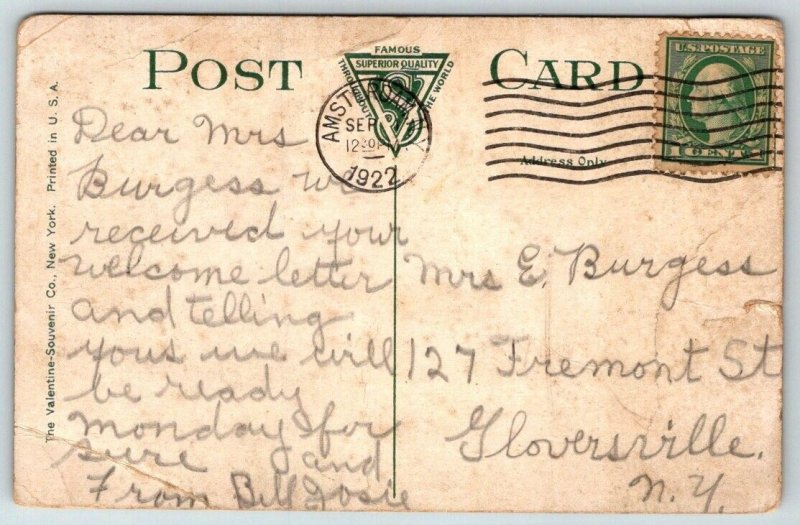 POST CARD
FAMOUS
SUPERIOR QUALITY
THROUGHOUT THE WORLD
U.S. POSTAGE
1 CENT 1
AMSTERDAM, N.Y.
SEP
1922
Address Only
The Valentine-Souvenir Co., New York. Printed in U. S. A.
Dear Mrs
Burgess we
received your
welcome letter
and telling
yous we will
be ready
Monday for
sure and
From Bill Josie
Mrs E. Burgess
127 Fremont St
Gloversville.
N.Y.